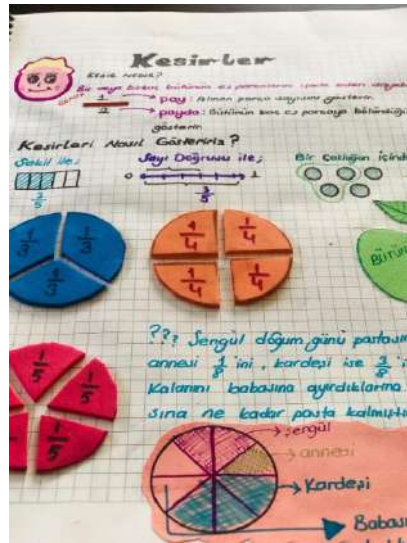 Kesirler
KESİR NEDİR?
Bir veya birkaç bütünün eş
1 → pay: Alınan parça sayısını gösterir.
2 → payda: Bütünün kaç eş parçaya bölündüğü
gösterir.
Kesirleri Nasıl Gösteririz?
Şekil ile;
Sayı Doğrusu ile;
Bir Çokluğun içind
0 1
3/5
3/5
1/3 1/3
1/3
1/4 1/4
1/4 1/4
BÜTÜN
1/5
1/5
1/5
??? Şengül doğum günü pastası
annesi 1/8 ini, kardeşi ise 3/8
Kalanını babasına ayırdıklarına
sına ne kadar pasta kalmıştı
Şengül
annesi
Kardeşi
Babası